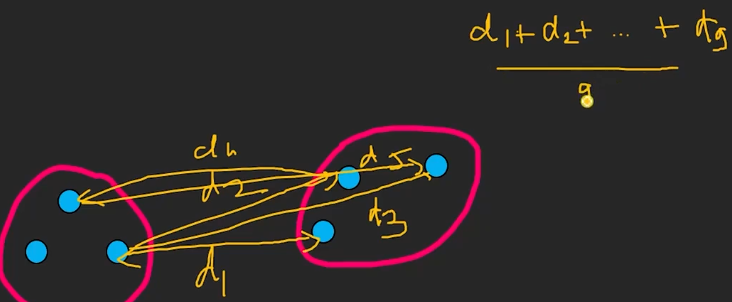 d1+d2+ ... + d9
9
d4
d5
d2
d3
d1